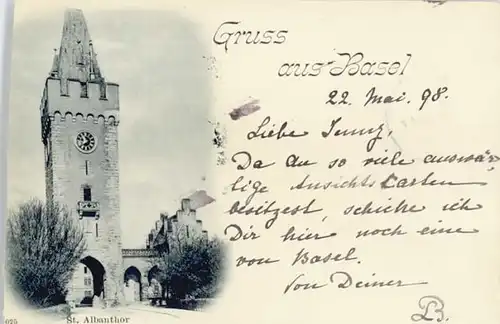 Gruss
aus Basel
22. Mai. 98.
Liebe Jenny,
Da du so viele auswär-
tige Ansichtskarten
besitzest, schicke ich
Dir hier noch eine
von Basel.
Von Deiner
B.
025 St. Albanthor